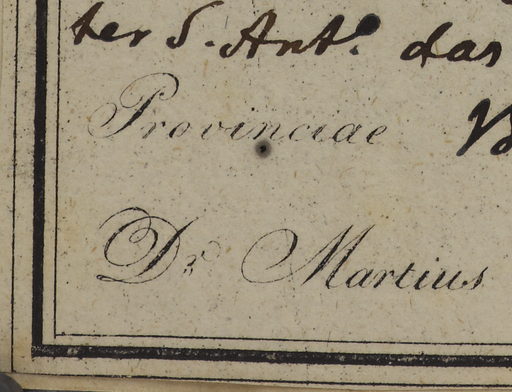 ter S. Antº das
Provinciae
Dr. Martius